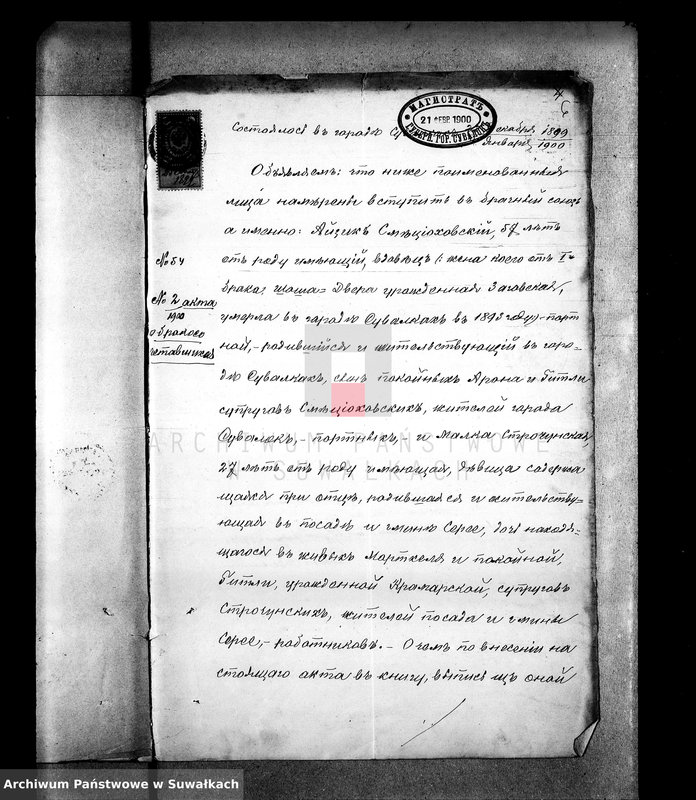 МАГИСТРАТЪ
21 ФЕВР. 1900
ГУБЕРН. ГОР. СУВАЛОКЪ
Состоялось въ городѣ Су екабря 1899
января 1900
Объявляемъ: что ниже поименованныя
лица намѣрены вступить въ брачный союзъ
а именно: Айзикъ Смѣціоховскій, 57 лѣтъ
отъ роду имѣющій, вдовецъ (: жена коего отъ I-
брака: Шоша-Двера урожденная Заговская,
умерла въ городѣ Сувалкахъ въ году) - порт
ной, - родившійся и жительствующій въ горо-
дѣ Сувалкахъ, сынъ покойныхъ Арона и Битли
супруговъ Смѣціоховскихъ, жителей города
Сувалокъ, - портныхъ, - и Малка Строчунская,
27 лѣтъ отъ роду имѣющая, дѣвица содержа
щаяся при отцѣ, родившаяся и жительству-
ющая въ посадѣ и гминѣ Серее, дочь находя-
щагося въ живыхъ Мортхеля и покойной,
Битли, урожденной Крамарской, супруговъ
Строчунскихъ, жителей посада и гмины
Серее, - работниковъ. - О чемъ по внесеніи на
стоящаго акта въ книгу, выпись изъ оной
№ 54
№ 2 акта
1900
о бракосо
четавшихся
ARCHIWUM PAŃSTWOWE
W SUWAŁKACH
Archiwum Państwowe w Suwałkach